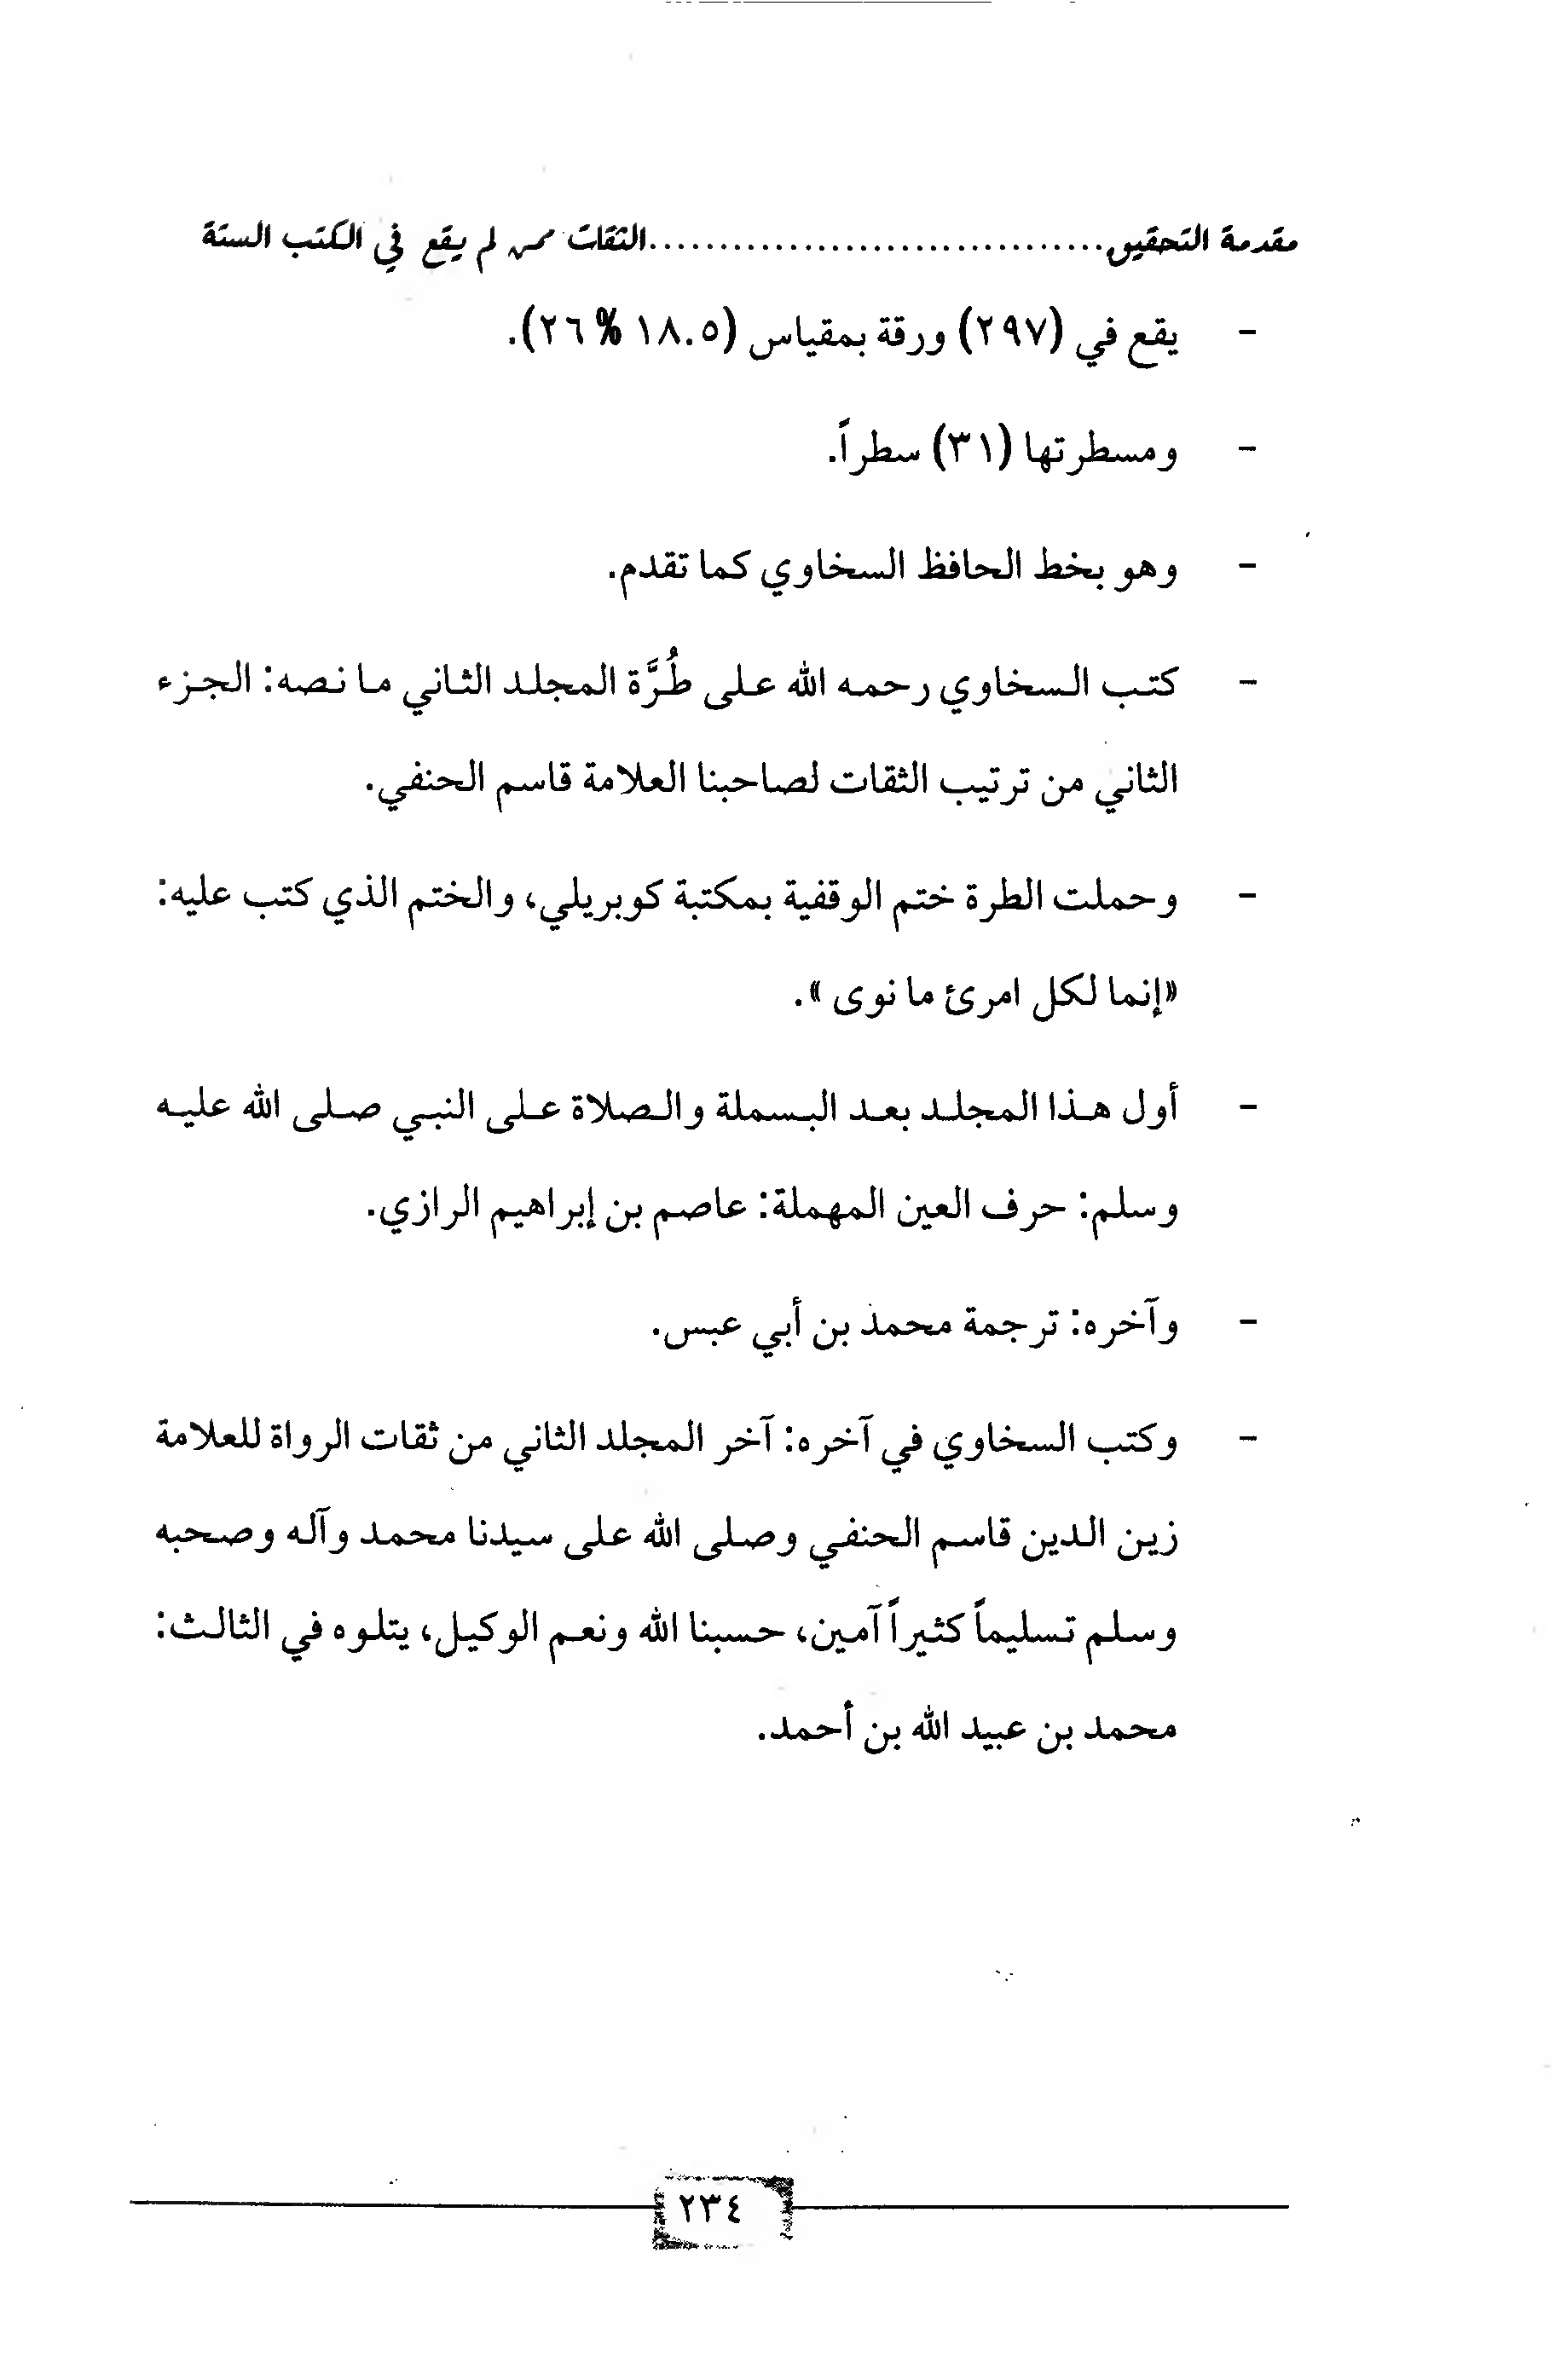 مقدمة التحقيق................................الثقات ممن لم يقع في الكتب الستة
- يقع في (٢٩٧) ورقة بمقياس (١٨.٥ % ٢٦).
- ومسطرتها (٣١) سطراً.
- وهو بخط الحافظ السخاوي كما تقدم.
- كتب السخاوي رحمه الله على طُرَّة المجلد الثاني ما نصه: الجزء
الثاني من ترتيب الثقات لصاحبنا العلامة قاسم الحنفي.
- وحملت الطرة ختم الوقفية بمكتبة كوبريلي، والختم الذي كتب عليه:
«إنما لكل امرئ ما نوى».
- أول هذا المجلد بعد البسملة والصلاة على النبي صلى الله عليه
وسلم: حرف العين المهملة: عاصم بن إبراهيم الرازي.
- وآخره: ترجمة محمد بن أبي عبس.
- وكتب السخاوي في آخره: آخر المجلد الثاني من ثقات الرواة للعلامة
زين الدين قاسم الحنفي وصلى الله على سيدنا محمد وآله وصحبه
وسلم تسليماً كثيراً آمين، حسبنا الله ونعم الوكيل، يتلوه في الثالث:
محمد بن عبيد الله بن أحمد.
٢٣٤